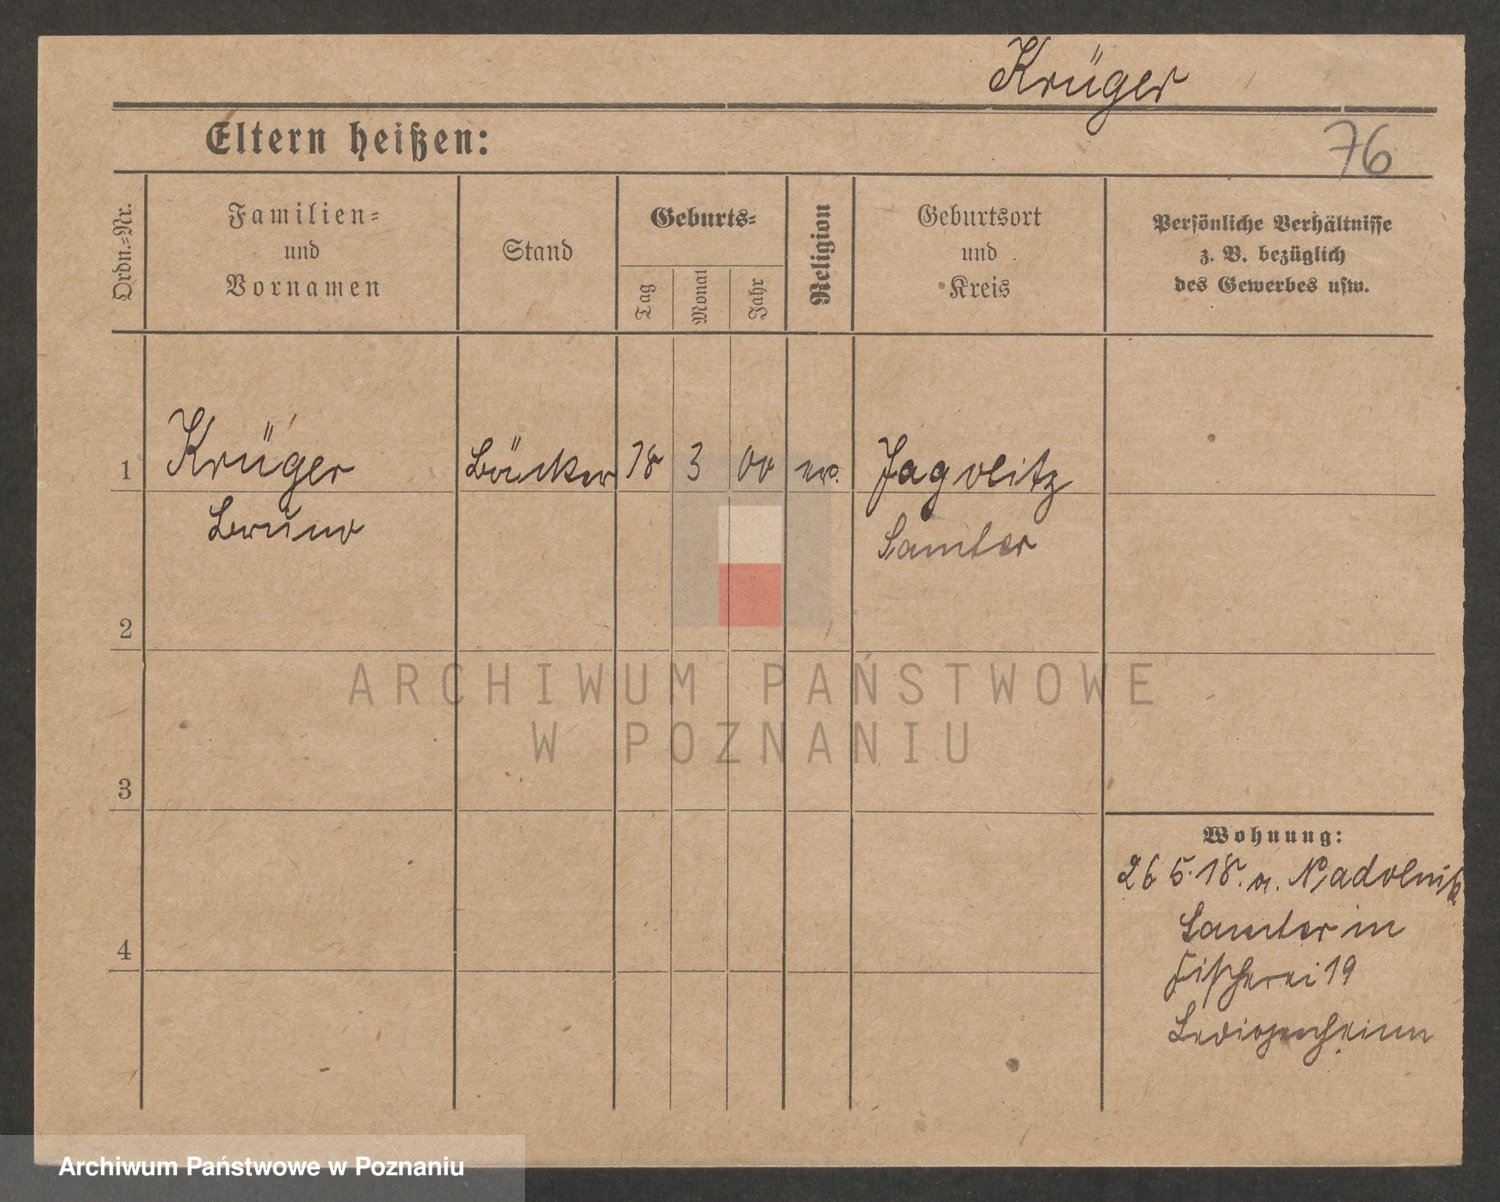 Krüger
Eltern heißen:
76
Ordn.-Nr.
Familien-
und
Vornamen
Stand
Geburts-
Tag
Monat
Jahr
Religion
Geburtsort
und
Kreis
Persönliche Verhältnisse
z. B. bezüglich
des Gewerbes usw.
1
Krüger
Bäcker
18
3
00
ev.
Bruno
Samter
2
3
4
Wohnung:
26 5. 18. a. Nadolnik
Samter in
Fischerei 19
Ledigenheim
ARCHIWUM PAŃSTWOWE
W POZNANIU
Archiwum Państwowe w Poznaniu